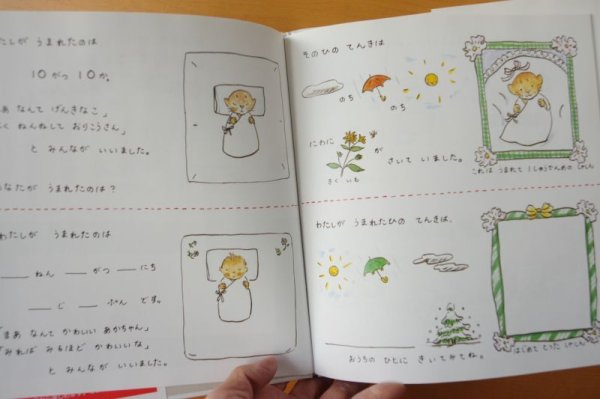 たしが うまれたのは
10がつ 10か。
あ なんて げんきなこ」
く ねんねして おりこうさん」
と みんなが いいました。
なたが うまれたのは?
たしが うまれたのは
ねん がつ にち
じ ぷん です。
「まあ なんて かわいい あかちゃん」
「みれば みるほど かわいいな」
と みんなが いいました。
そのひの てんきは
のち のち
にわに が さいて いました。
きくいも
これは うまれて 1しゅうかんめの しゃしん
わたしが うまれたひの てんきは、
おうちの ひとに きいてみてね。
はじめて とった しゃしん